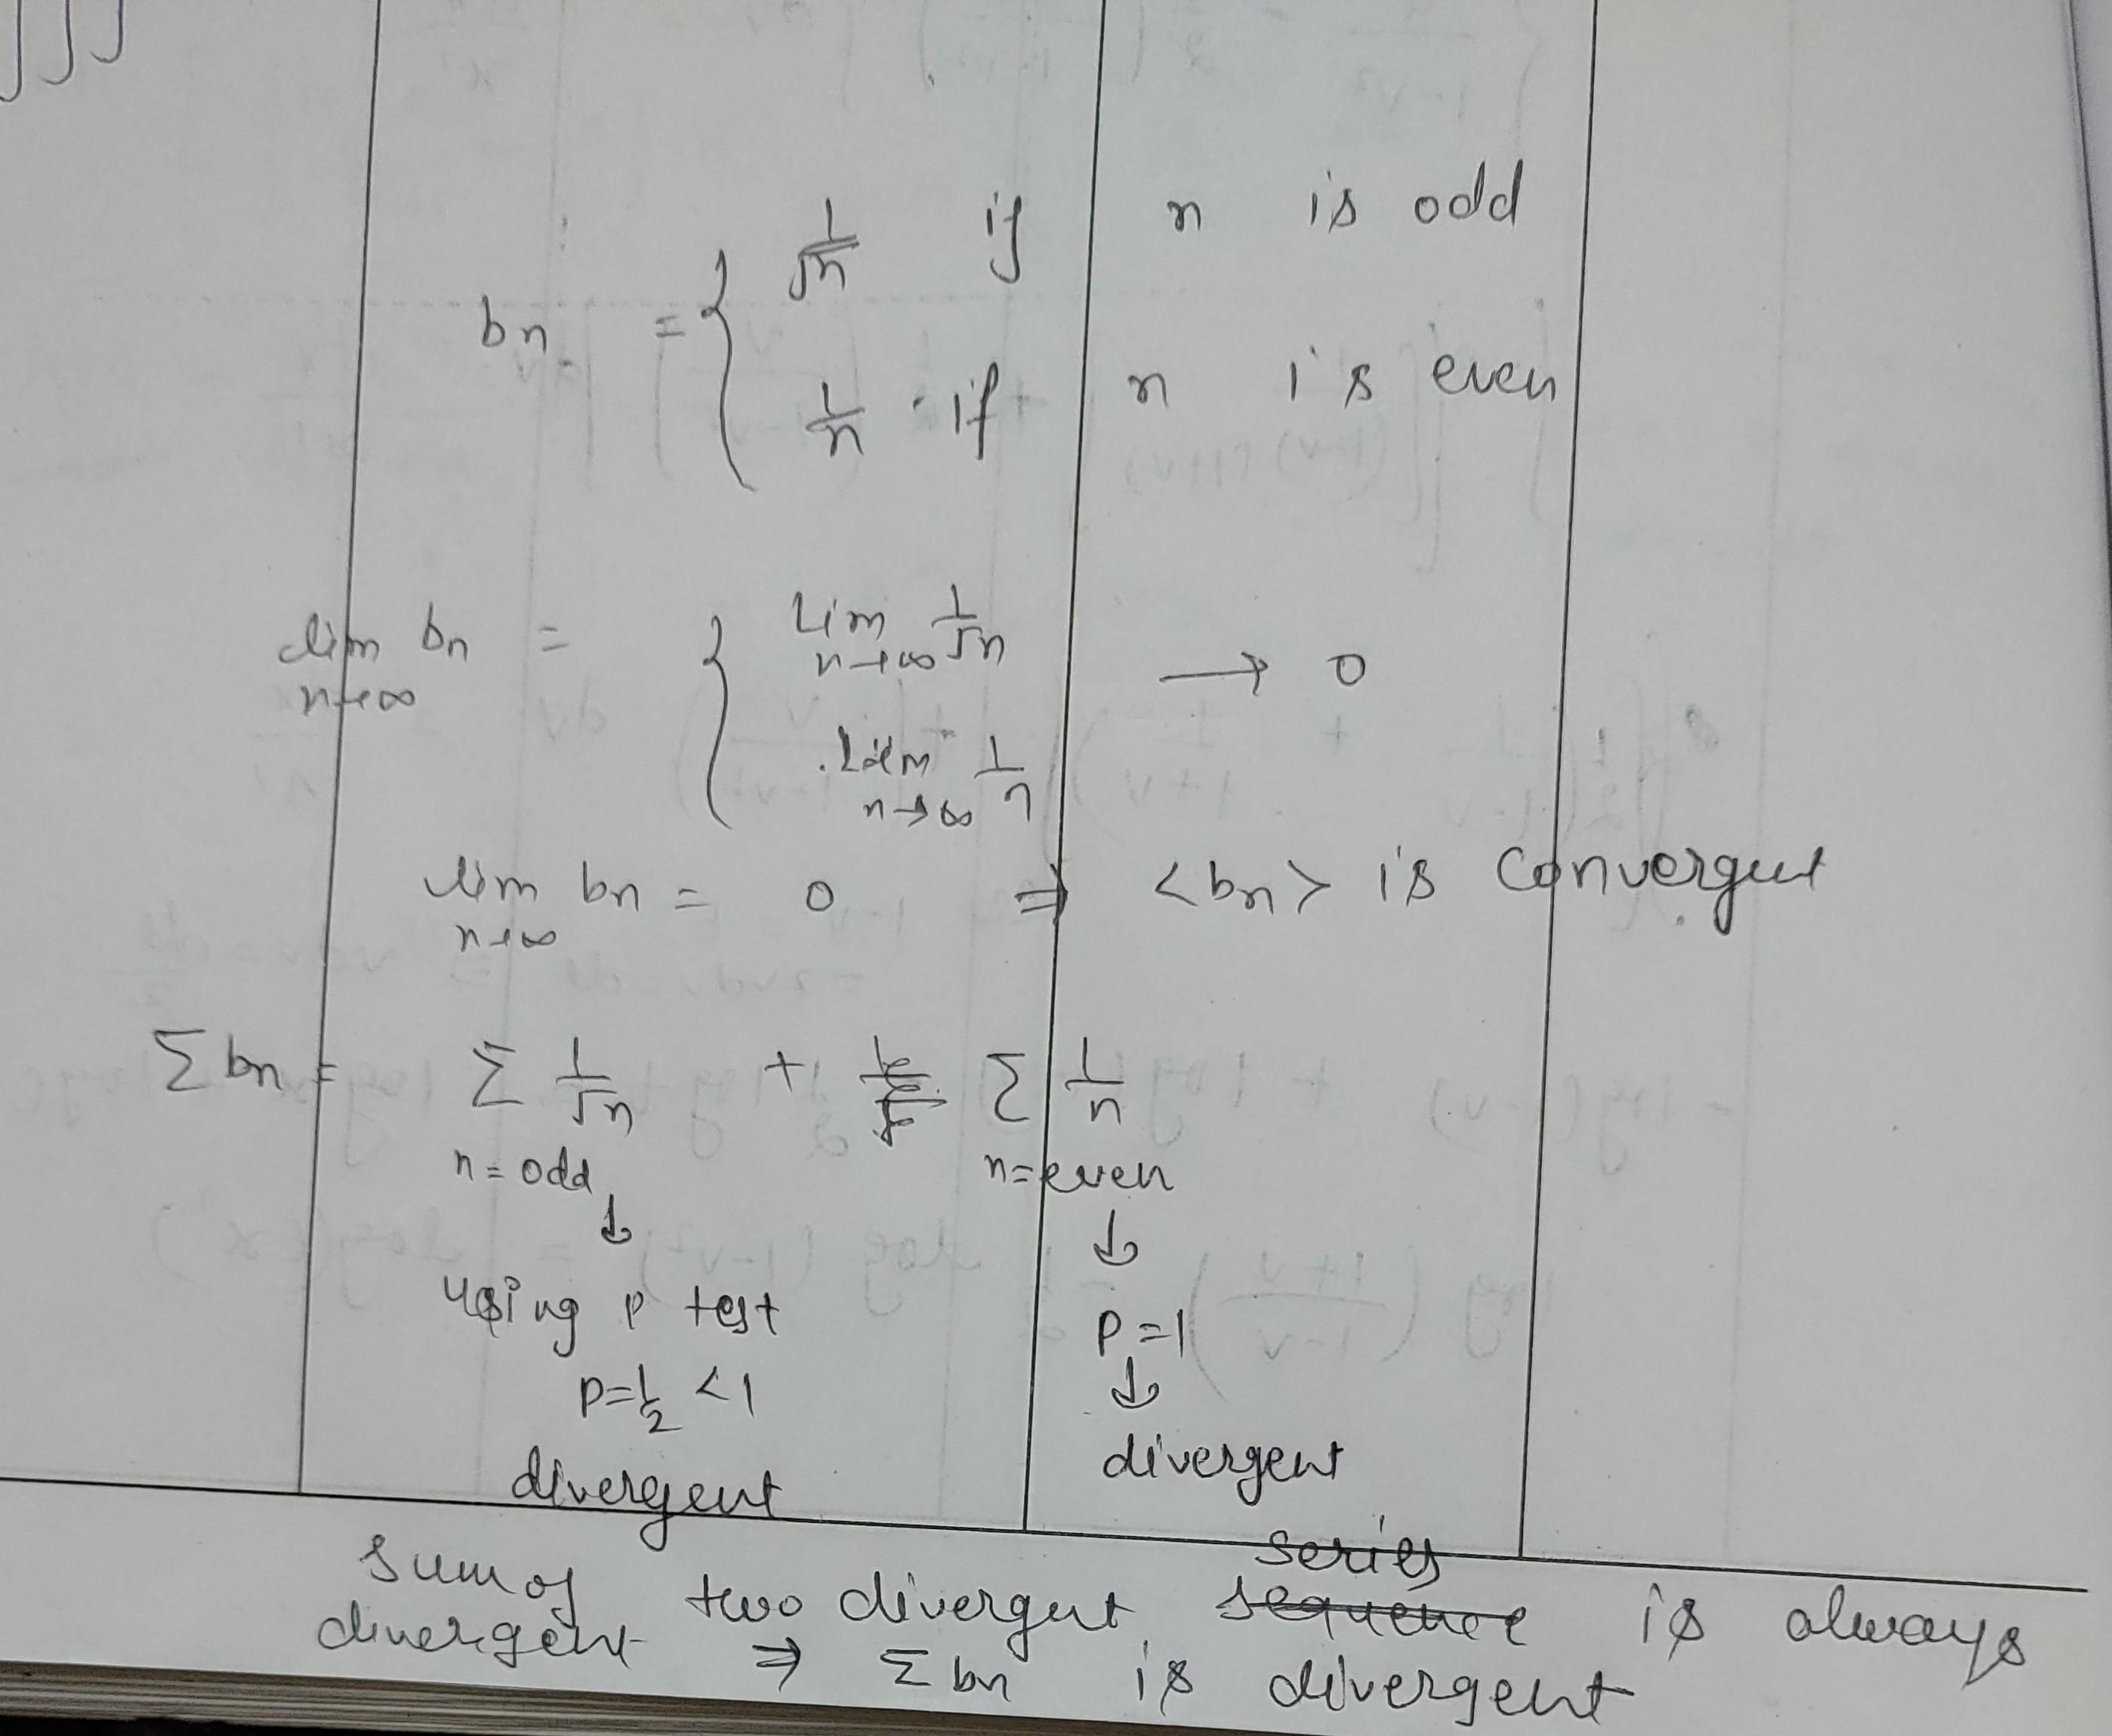 bn = { 1/√n if n is odd
1/n if n is even
lim n→∞ bn = { Lim n→∞ 1/√n → 0
Lim n→∞ 1/n
lim n→∞ bn = 0 ⇒ <bn> is convergent
Σ bn = Σ 1/√n + Σ 1/n
n = odd n = even
↓ ↓
using p test p = 1
p = 1/2 < 1 ↓
divergent divergent
series
sum of two divergent sequence is always
divergent ⇒ Σ bn is divergent